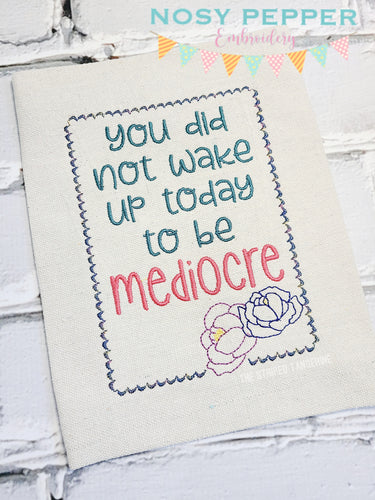 NOSY PEPPER
Embroidery
you did
not wake
up today
to be
mediocre